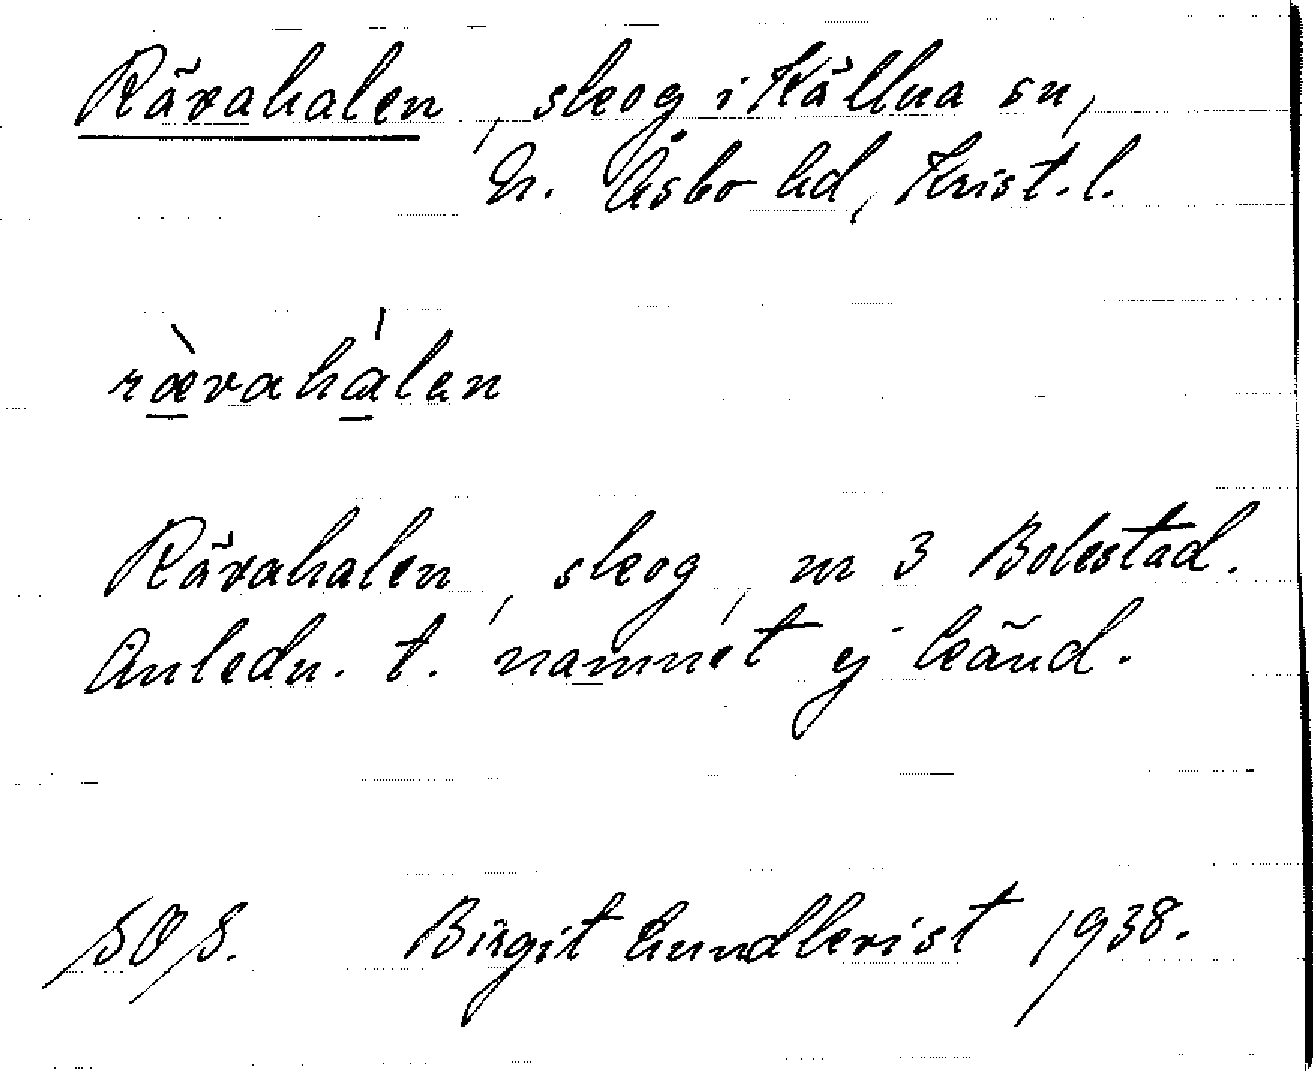 Rävahalen, skog i Källna sn,
N. Åsbo hd, Krist. l.
ràvahálen
Rävahalen, skog, nr 3 Bolestad.
Anledn. t. namnet ej känd.
SOS. Birgit Lundkvist 1938.